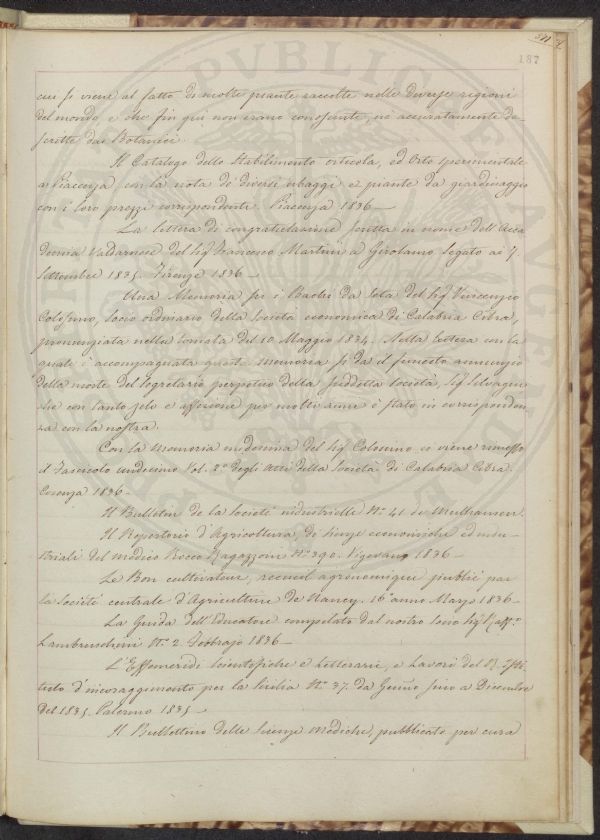 187
cui si viene al fatto di molte piante raccolte nelle diverse regioni
del mondo, e che fin qui non erano conosciute, nè accuratamente de-
scritte dai Botanici.
Il Catalogo dello Stabilimento orticola, ed Orto sperimentale
a Piacenza con la nota de diversi erbaggi e piante da giardinaggio
con i loro prezzi corrispondenti. Piacenza 1836 —
La lettera di congratulazione scritta in nome dell'Acca
demia Valdarnese del Sig Francesco Martini a Girolamo Segato ai 7.
Settembre 1835. Firenze 1836 —
Una Memoria su i Bachi da Seta del Sig Vincenzio
Colosimo, Socio ordinario della Società economica di Calabria Citra,
pronunziata nella tornata del 10. Maggio 1834. Nella lettera con la
quale è accompagnata questa memoria si dà il funesto annunzio
della morte del Segretario perpetuo della suddetta Società, Sig Salvagni
che con tanto zelo e affezione per molti anni è stato in corrisponden
za con la nostra.
Con la Memoria medesima del Sig Colosimo ci viene rimesso
il Fascicolo undicesimo Vol. 2° degli Atti della Società di Calabria Citra.
Cosenza 1836 —
Il Bulletin de la Societé industrielle N° 41 de Mulhausen.
Il Repertorio d'Agricoltura, di scienze economiche ed indu-
striali del Medico Rocco Ragazzoni N° 390. Vigevano 1836 —
Le Bon cultivateur, recueil agronomique publié par
la Societé centrale d'Agriculture de Nancy. 16° anno Marzo 1836 —
La Guida dell'Educatore compilata dal nostro Socio Sig Raff°
Lambruschini N° 2. Febbrajo 1836 —
L'Effemeridi Scientifiche e Letterarie, e Lavori del R. Isti
tuto d'incoraggimento per la Sicilia N° 37. da Genn° sino a Dicembre
del 1835. Palermo 1835 —
Il Bullettino delle Scienze Mediche, pubblicato per cura